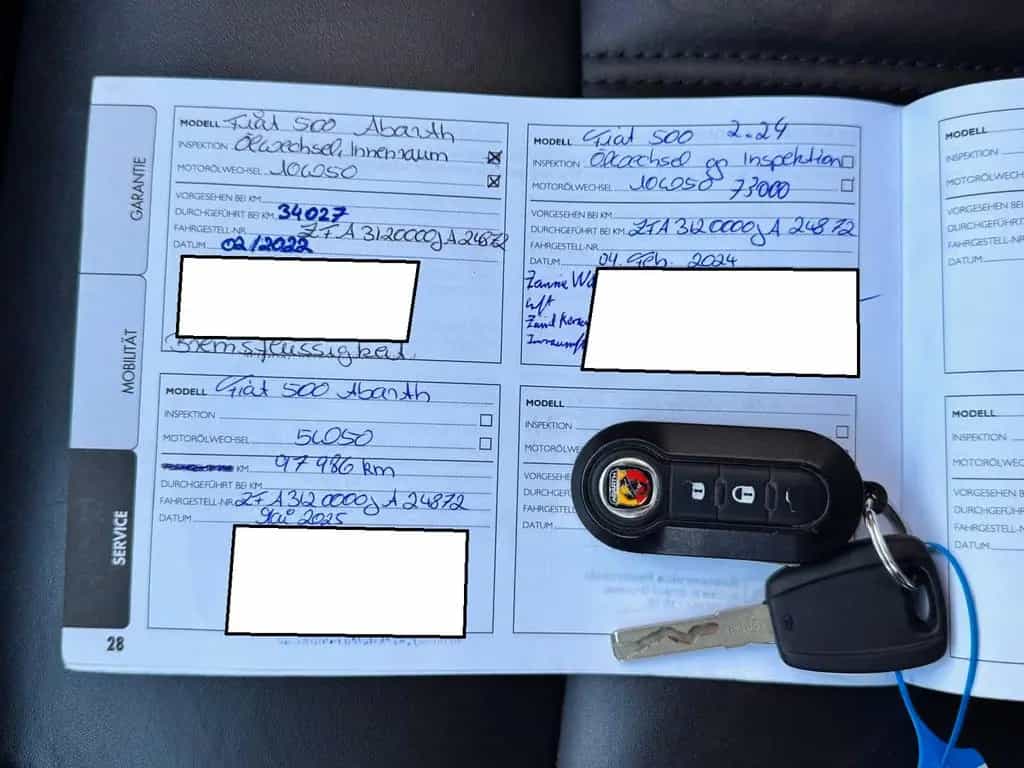 GARANTIE
MOBILITÄT
SERVICE
28
MODELL Fiat 500 Abarth
INSPEKTION Ölwechsel, Innenraum
MOTORÖLWECHSEL 10W50
VORGESEHEN BEI KM
DURCHGEFÜHRT BEI KM 34027
FAHRGESTELL-NR. ZFA3120000JA24872
DATUM 02/2022
Bremsflüssigkeit
MODELL Fiat 500 2.24
INSPEKTION Ölwechsel gr Inspektion
MOTORÖLWECHSEL 10W50 73000
VORGESEHEN BEI KM
DURCHGEFÜHRT BEI KM ZFA3120000JA24872
FAHRGESTELL-NR.
DATUM 04. Feb. 2024
Luft
Zünd
MODELL Fiat 500 Abarth
INSPEKTION
MOTORÖLWECHSEL 5W50
KM 97986 km
DURCHGEFÜHRT BEI KM
FAHRGESTELL-NR. ZFA3120000JA24872
DATUM Mai 2025
MODELL
INSPEKTION
MOTORÖLWE
VORGESE
DURCHG
FAHRGES
DATUM
MODELL
INSPEKTION
MOTORÖLWECHS
VORGESEHEN BEI
DURCHGEFÜHRT BE
FAHRGESTELL-NR
DATUM
MODELL
INSPEKTION
MOTORÖLWEC
VORGESEHEN B
DURCHGEFÜHR
FAHRGESTELL-N
DATUM